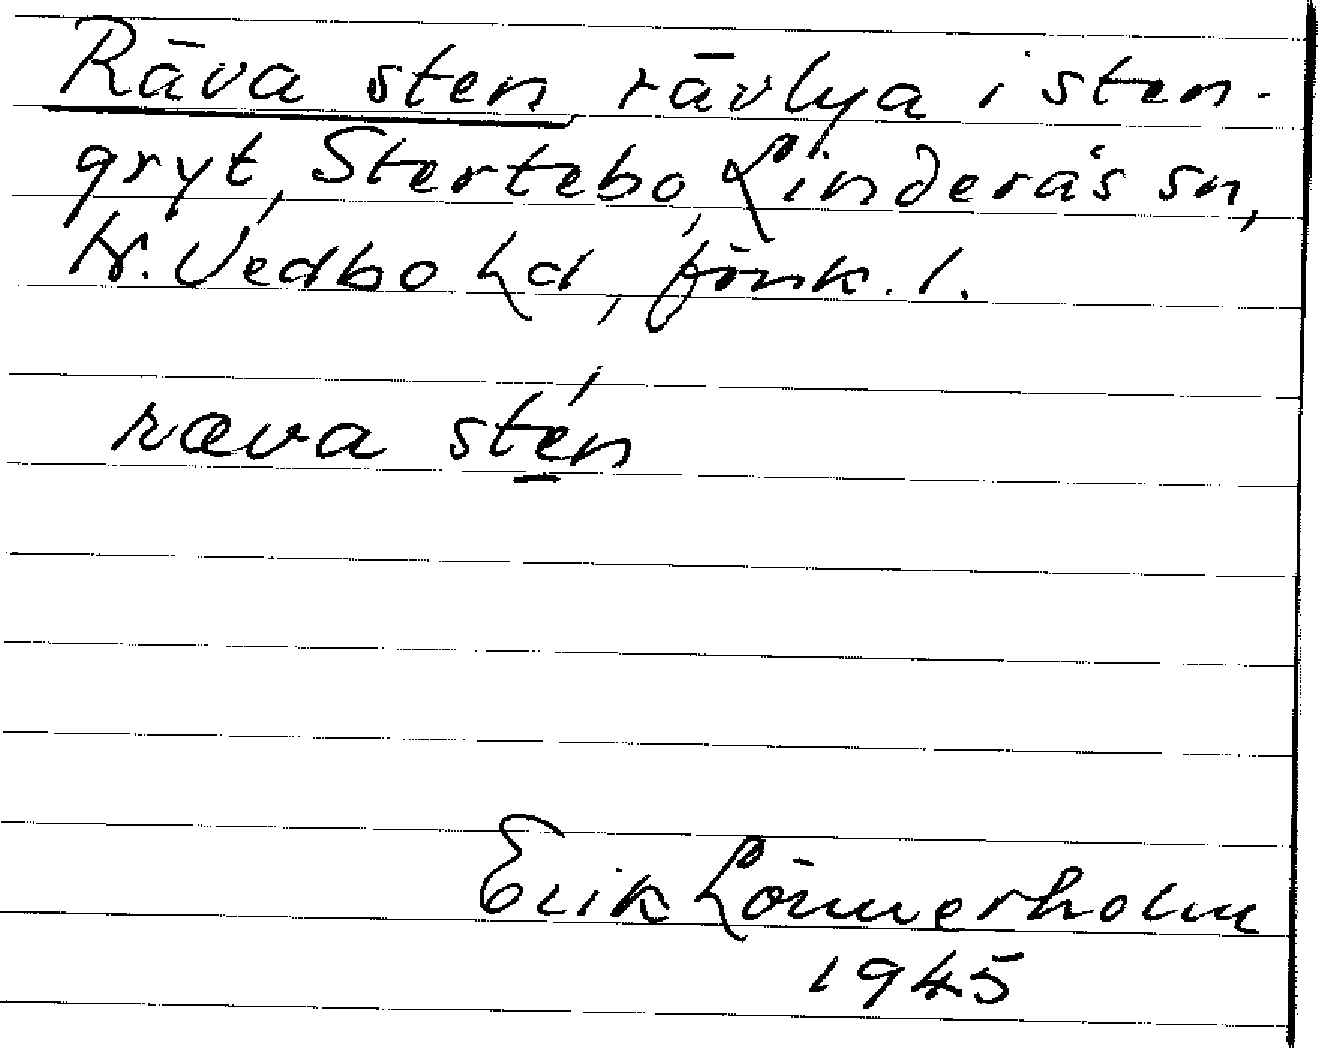 Räva sten, rävlya i sten-
gryt, Stertebo, Linderås sn,
N. Vedbo hd, Jönk. l.
ræva stén
Erik Lönnerholm
1945